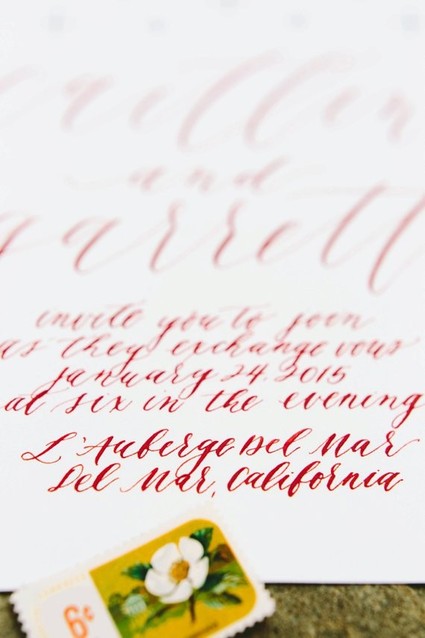 and
arrett
invite you to join
as they exchange vows
january 24. 2015
at six in the evening
L'Auberge Del Mar
Del Mar, California
6¢